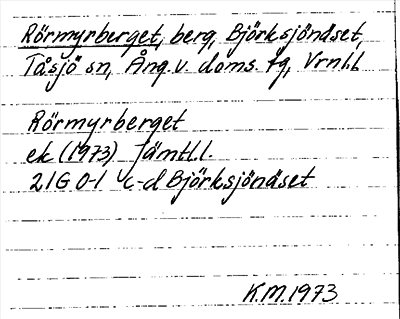 Rörmyrberget, berg, Björksjönäset,
Tåsjö sn, Ång. v. doms. tg, Vrnl.l.
Rörmyrberget
ek (1973) Jämtl.l.
21G 0-1 c-d Björksjönäset
K.M.1973